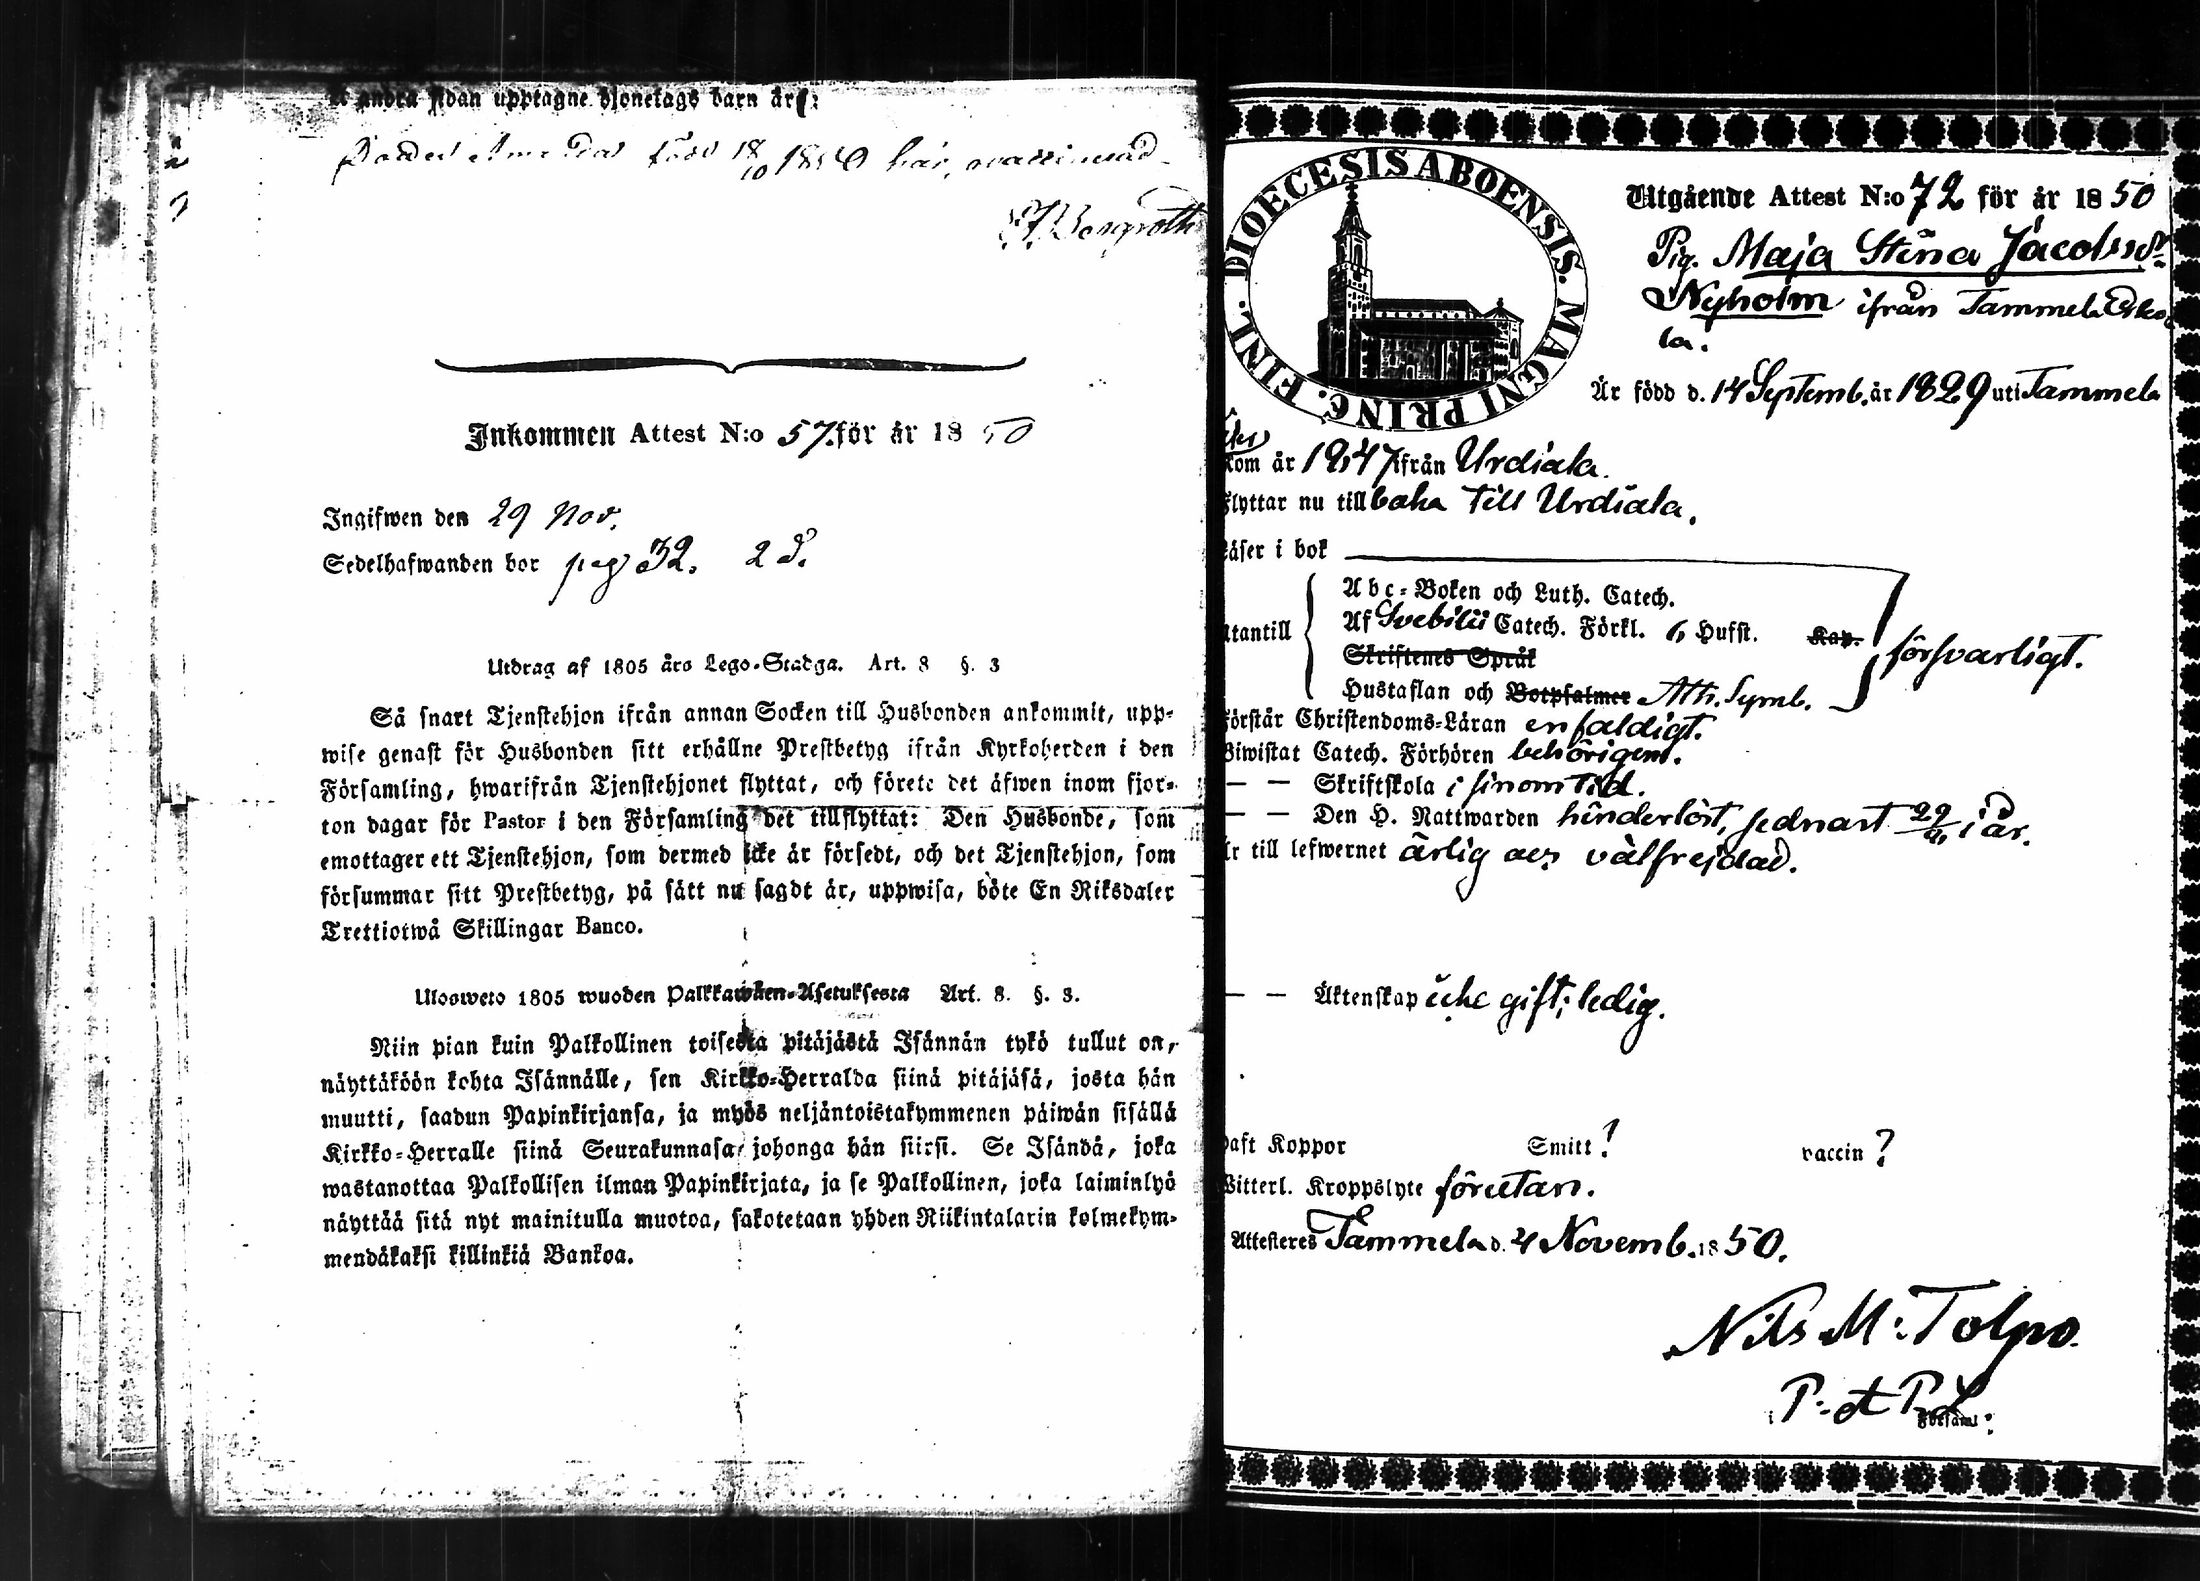 å andra sidan upptagne tjonefags barn är:
född 18/10 18 0 här, ovaccinerad
Bergroth
Inkommen Attest N:o 57. för år 18 50
Ingifwen den 29 Nov.
Sedelhafwanden bor pag 32. 2 d.
Utdrag af 1805 års Lego-Stadga. Art. 8 §. 3
Så snart Tjenstehjon ifrån annan Socken till Husbonden ankommit, upp-
wise genast för Husbonden sitt erhållne Prestbetyg ifrån Kyrkoherden i den
Församling, hwarifrån Tjenstehjonet flyttat, och förete det äfwen inom fjor-
ton dagar för Pastor i den Församling det tillflyttat: Den Husbonde, som
emottager ett Tjenstehjon, som dermed icke är försedt, och det Tjenstehjon, som
försummar sitt Prestbetyg, på sätt nu sagdt är, uppwisa, böte En Riksdaler
Trettiotwå Skillingar Banco.
Ulosweto 1805 wuoden Palkkawäen-Asetuksesta Art. 8. §. 3.
Niin pian kuin Palkollinen toisesta pitäjästä Isännän tykö tullut on,
näyttäköön kohta Isännälle, sen Kirkko-Herralda siinä pitäjäsä, josta hän
muutti, saadun Papinkirjansa, ja myös neljäntoistakymmenen päiwän sisällä
Kirkko-Herralle siinä Seurakunnasa johonga hän siirsi. Se Isändä, joka
wastanottaa Palkollisen ilman Papinkirjata, ja se Palkollinen, joka laiminlyö
näyttää sitä nyt mainitulla muotoa, sakotetaan yhden Riikintalarin kolmekym-
mendäkaksi killinkiä Bankoa.
DIOECESIS ABOENSIS. MAGNI PRINC. FINL.
Utgående Attest N:o 72 för år 18 50
Pig. Maja Stina Jacobsdr
Nyholm ifrån Tammela Esko
la.
Är född d. 14 Septemb. år 1829 uti Tammela
kom år 1847 ifrån Urdiala.
flyttar nu tillbaka till Urdiala.
läser i bok
Abc-Boken och Luth. Catech.
utantill Af Svebilii Catech. Förkl. 6 Hufst. Kap. försvarligt.
Skriftenes Språk
Hustaflan och Botpsalmer Ath. Symb.
förstår Christendoms-Läran enfaldigt.
Biwistat Catech. Förhören behörigen.
— — Skriftskola i sinom tid.
— — Den H. Nattwarden hinderlöst, sednast 29/9 i år.
Är till lefwernet ärlig och välfrejdad.
— — Äktenskap icke gift; ledig.
haft Koppor Smitt? vaccin?
Witterl. Kroppslyte förutan.
Attesteres Tammela d. 4 Novemb. 18 50.
Nils M: Tolpo.
P: et P: L
i Församl: